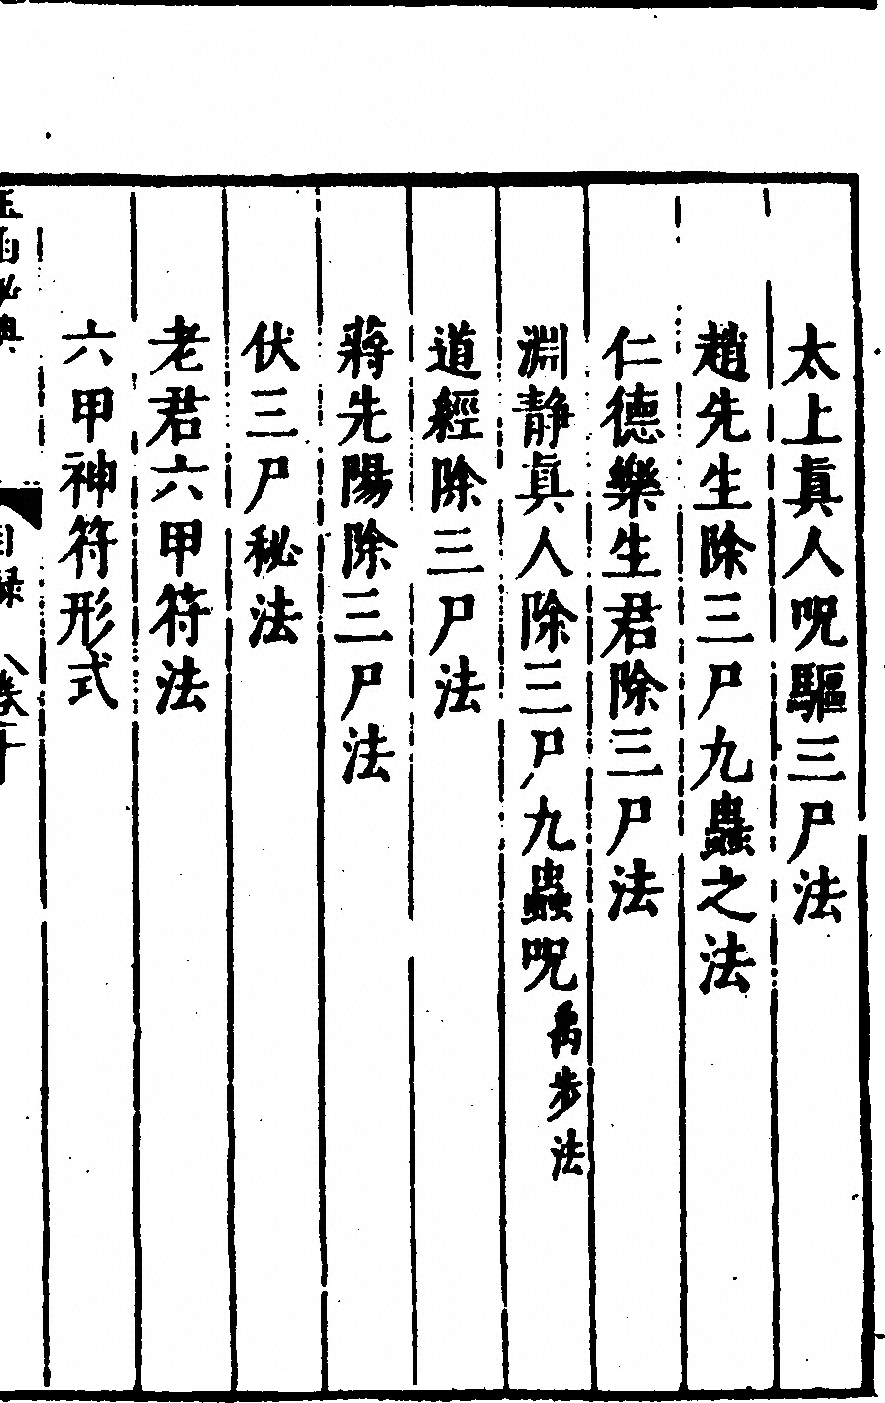 太上眞人呪驅三尸法
趙先生除三尸九蟲之法
仁德樂生君除三尸法
淵静眞人除三尸九蟲呪 禹步法
道經除三尸法
蔣先陽除三尸法
伏三尸秘法
老君六甲符法
六甲神符形式
目録